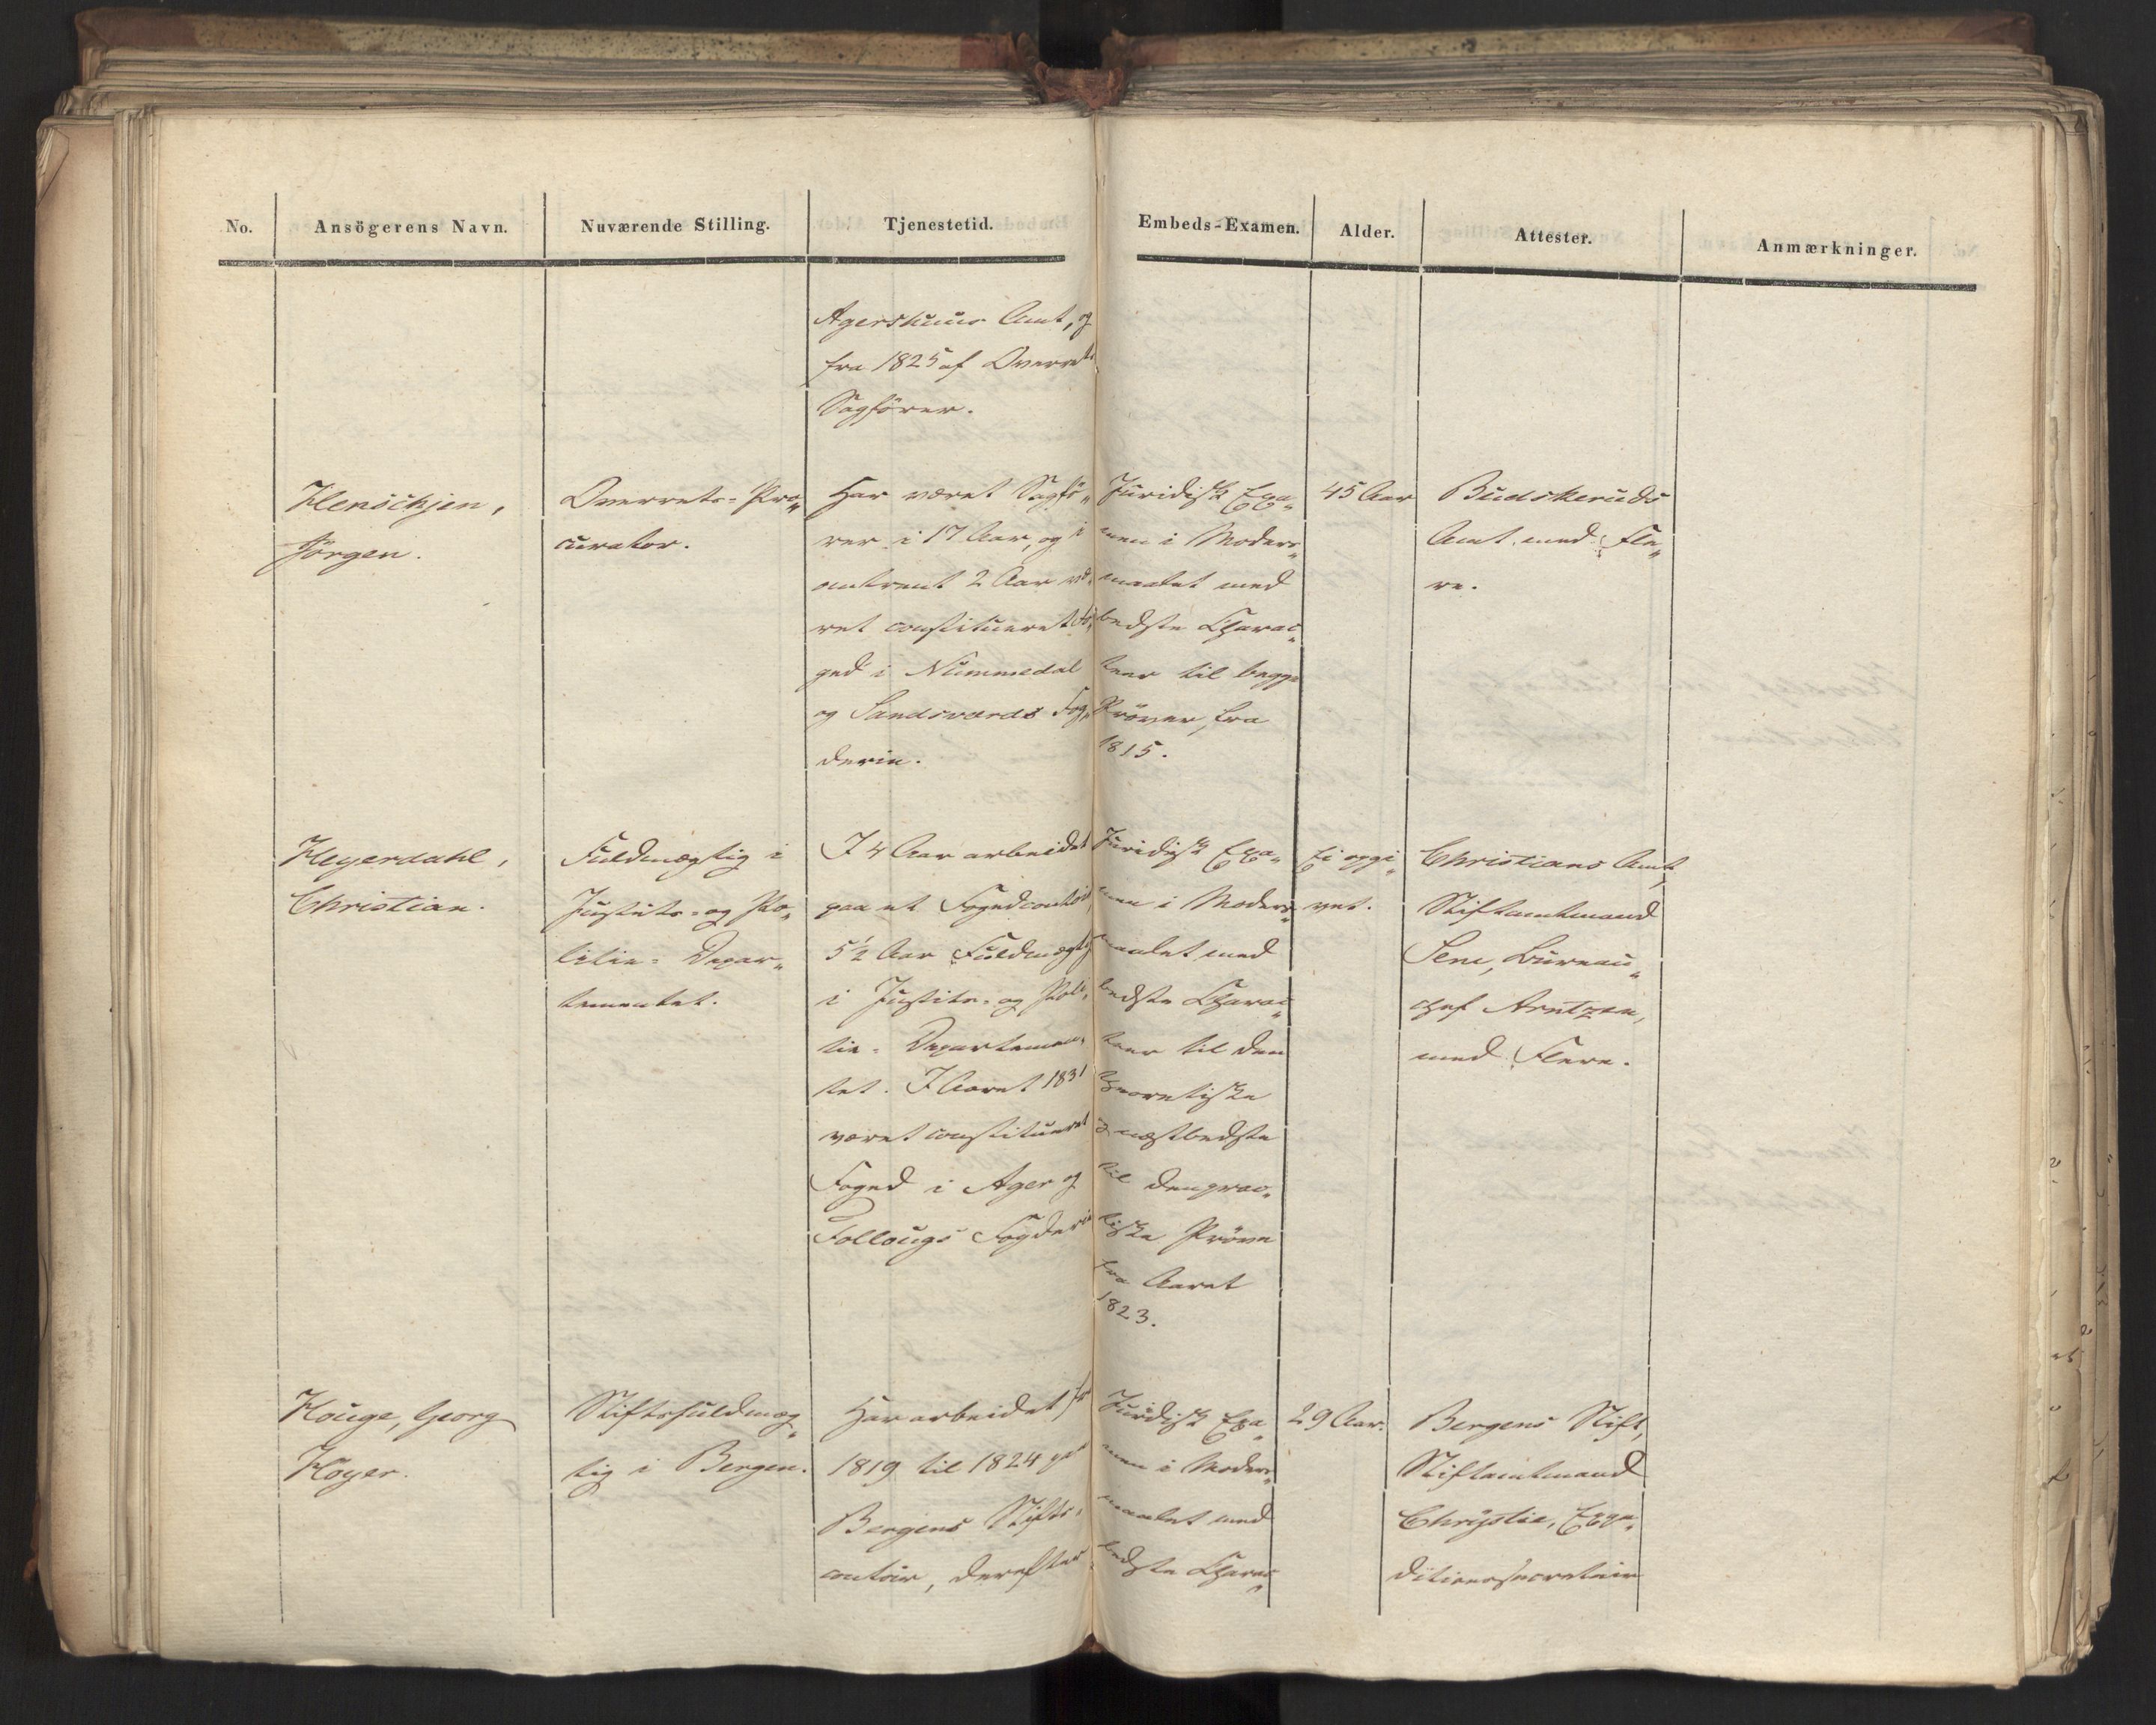 No.
Ansögerens Navn.
Nuværende Stilling.
Tjenestetid.
Embeds-Examen.
Alder.
Attester.
Anmærkninger.
Agershuus Amt, og
fra 1825 af Overrets
Sagförer.
Henschjen,
Jörgen.
Overrets-Pro„
curator.
Har været Sagfö„
rer i 17 Aar, og i
omtrent 2 Aar væ„
ret constitueret Fo„
ged i Nummedal
og Sandsværds Fog„
derie.
Juridisk Exa„
men i Moders„
maalet med
bedste Charac„
teer til begge
Pröver, fra
1815.
45 Aar
Buskeruds
Amt med Fle„
re.
Heyerdahl,
Christian.
Fuldmægtig i
Justits- og Po„
litie-Depar„
tementet.
I 4 Aar arbeidet
paa et Fogedcontoir,
5½ Aar Fuldmægtig
i Justits- og Poli„
tie-Departemen„
tet. I Aaret 1831
været constitueret
Foged i Ager og
Follougs Fogderie
Juridisk Exa„
men i Moders„
maalet med
bedste Charac„
teer til den
theoretiske
og næstbedste
til den prac„
tiske Pröve
fra Aaret
1823.
Ei opgi„
vet.
Christians Amt,
Stiftamtmand
Sem, Bureau„
chef Arntzen,
med Flere.
Houge, Georg
Høyer.
Stiftsfuldmæg„
tig i Bergen.
Har arbeidet fra
1819 til 1824 paa
Bergens Stifts„
contoir, derefter
Juridisk Exa„
men i Moders„
maalet med
bedste Charac„
29 Aar.
Bergens Stift,
Stiftamtmand
Christie, Expe„
ditionssecretair